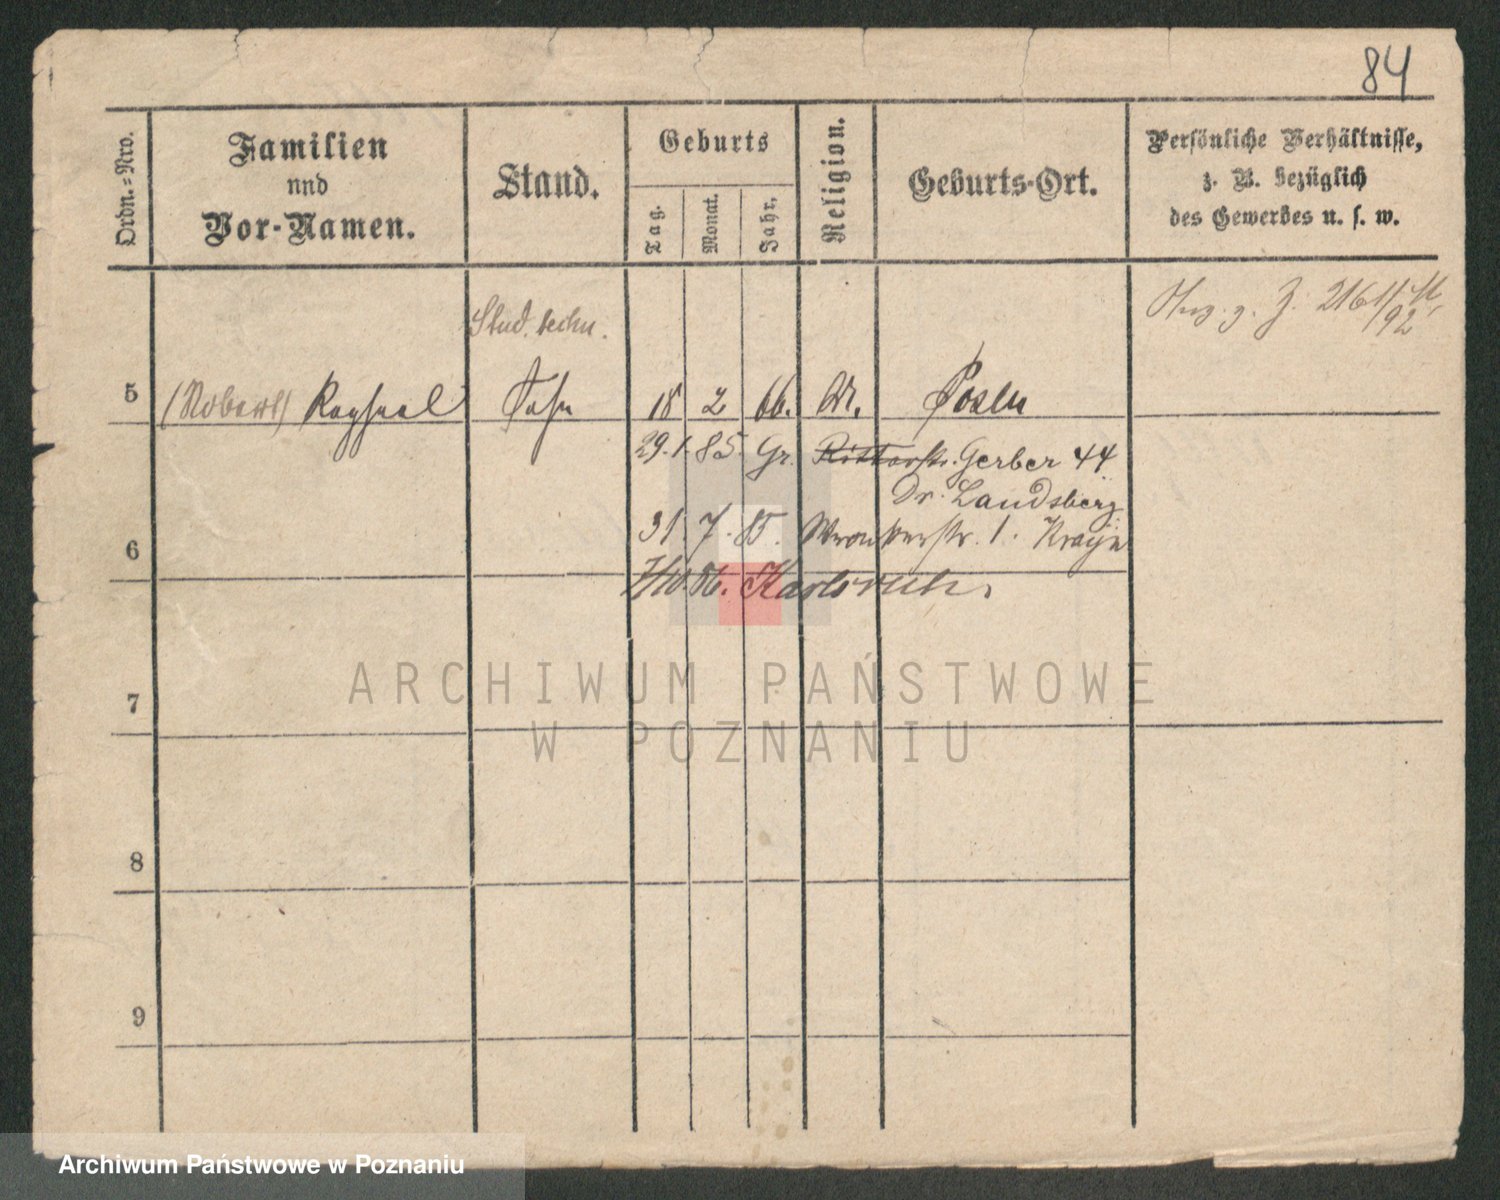 84
Ordn.=Nro.
Familien
nnd
Vor-Namen.
Stand.
Geburts
Tag.
Monat.
Jahr.
Religion.
Geburts-Ort.
Persönliche Verhältnisse,
z. B. bezüglich
des Gewerbes u. s. w.
Stud. techn.
5 (Robert) Raphael Sohn 18 2 66. Posen
29. 1. 85. Gr. Ritterstr. Gerber 44
Dr. Landsberg
6 31. 7. 85. Wronkerstr. 1.
86. Karlsruhe
7
8
9
ARCHIWUM PAŃSTWOWE
W POZNANIU
Archiwum Państwowe w Poznaniu